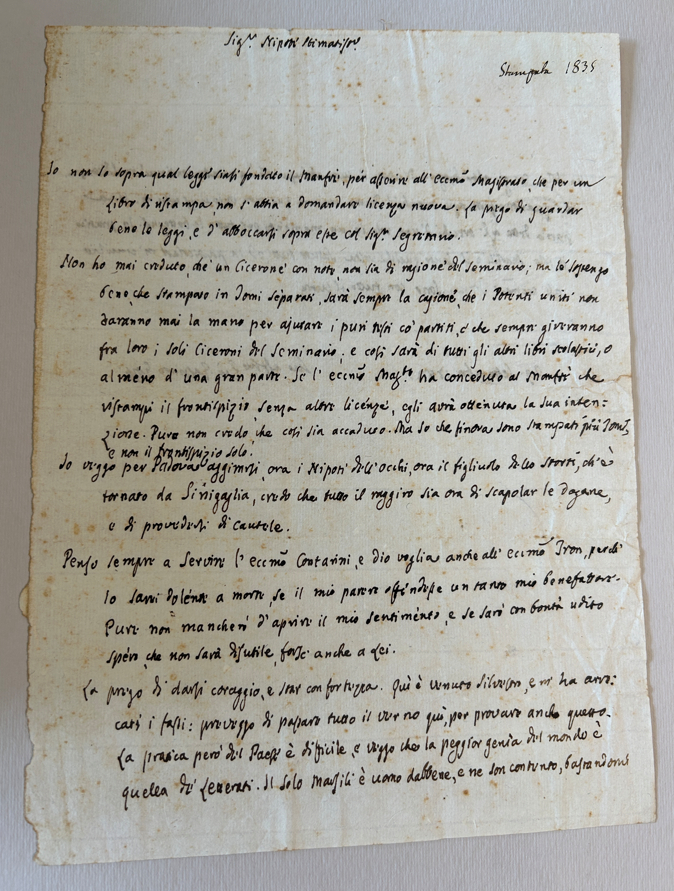 Sig.r Nipote Stimatiss.o
Stampata 1835
Io non so sopra qual legge siasi fondato il Manfrè, per asserire all' eccmo Magistrato, che per un
Libro di ristampa, non s' abbia a domandare licenza nuova. La prego di guardar
bene le leggi, e d' abboccarsi sopra esse col Sig.r Segretario.
Non ho mai creduto, che un Cicerone con note, non sia di ragione del Seminario; ma le sostengo
bene, che stampato in Tomi separati, sarà sempre la cagione, che i Potenti uniti non
daranno mai la mano per ajutare i puri testi co' partiti, e che sempre gireranno
fra loro i soli Ciceroni del Seminario; e così sarà di tutti gli altri libri scolastici, o
almeno d' una gran parte. Se l' eccmo Mag.to ha conceduto al Manfrè che
ristampi il frontispizio senza altre licenze, egli avrà ottenuta la sua inten=
zione. Pure non credo che così sia accaduto. Ma so che finora sono stampati più Tomi,
e non il frontispizio solo.
Io veggo per Padova aggirarsi, ora i Nipoti dell' Occhi, ora il figliuolo dello Storti, ch' è
tornato da Sinigaglia, credo che tutto il raggiro sia ora di scapolar le Dogane,
e di provedersi di cautele.
Penso sempre a servire l' eccmo Contarini, e dio voglia anche all' eccmo Tron, perchè
Io sarei dolente a morte, se il mio parere offendesse un tanto mio benefattore.
Pure non mancherò d' aprire il mio sentimento, e se sarò con bontà udito
spero che non sarà disutile, forse anche a Lei.
La prego di darsi coraggio, e star con fortezza. Quì è venuto Silvestro, e m' ha arre:
cati i fasti: proveggo di passare tutto il verno quì, per provare anche questo.
La pratica però del Paese è difficile, e veggo che la peggior genia del mondo è
quella de' Letterati. Il solo Marsili è uomo dabbene, e ne son contento, bastandomi